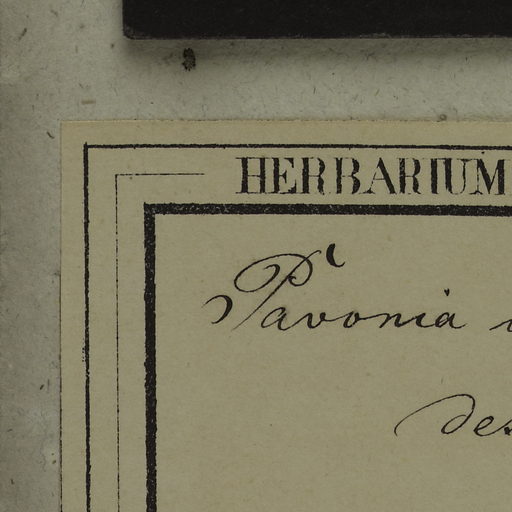 HERBARIUM
Pavonia